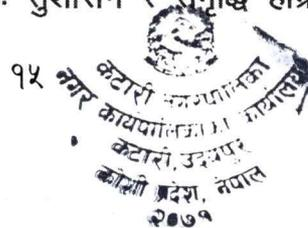 सुशासन र समृद्धि
१५
कटारी नगरपालिका
नगर कार्यपालिकाको कार्यालय
कटारी, उदयपुर
कोशी प्रदेश, नेपाल
२०७१